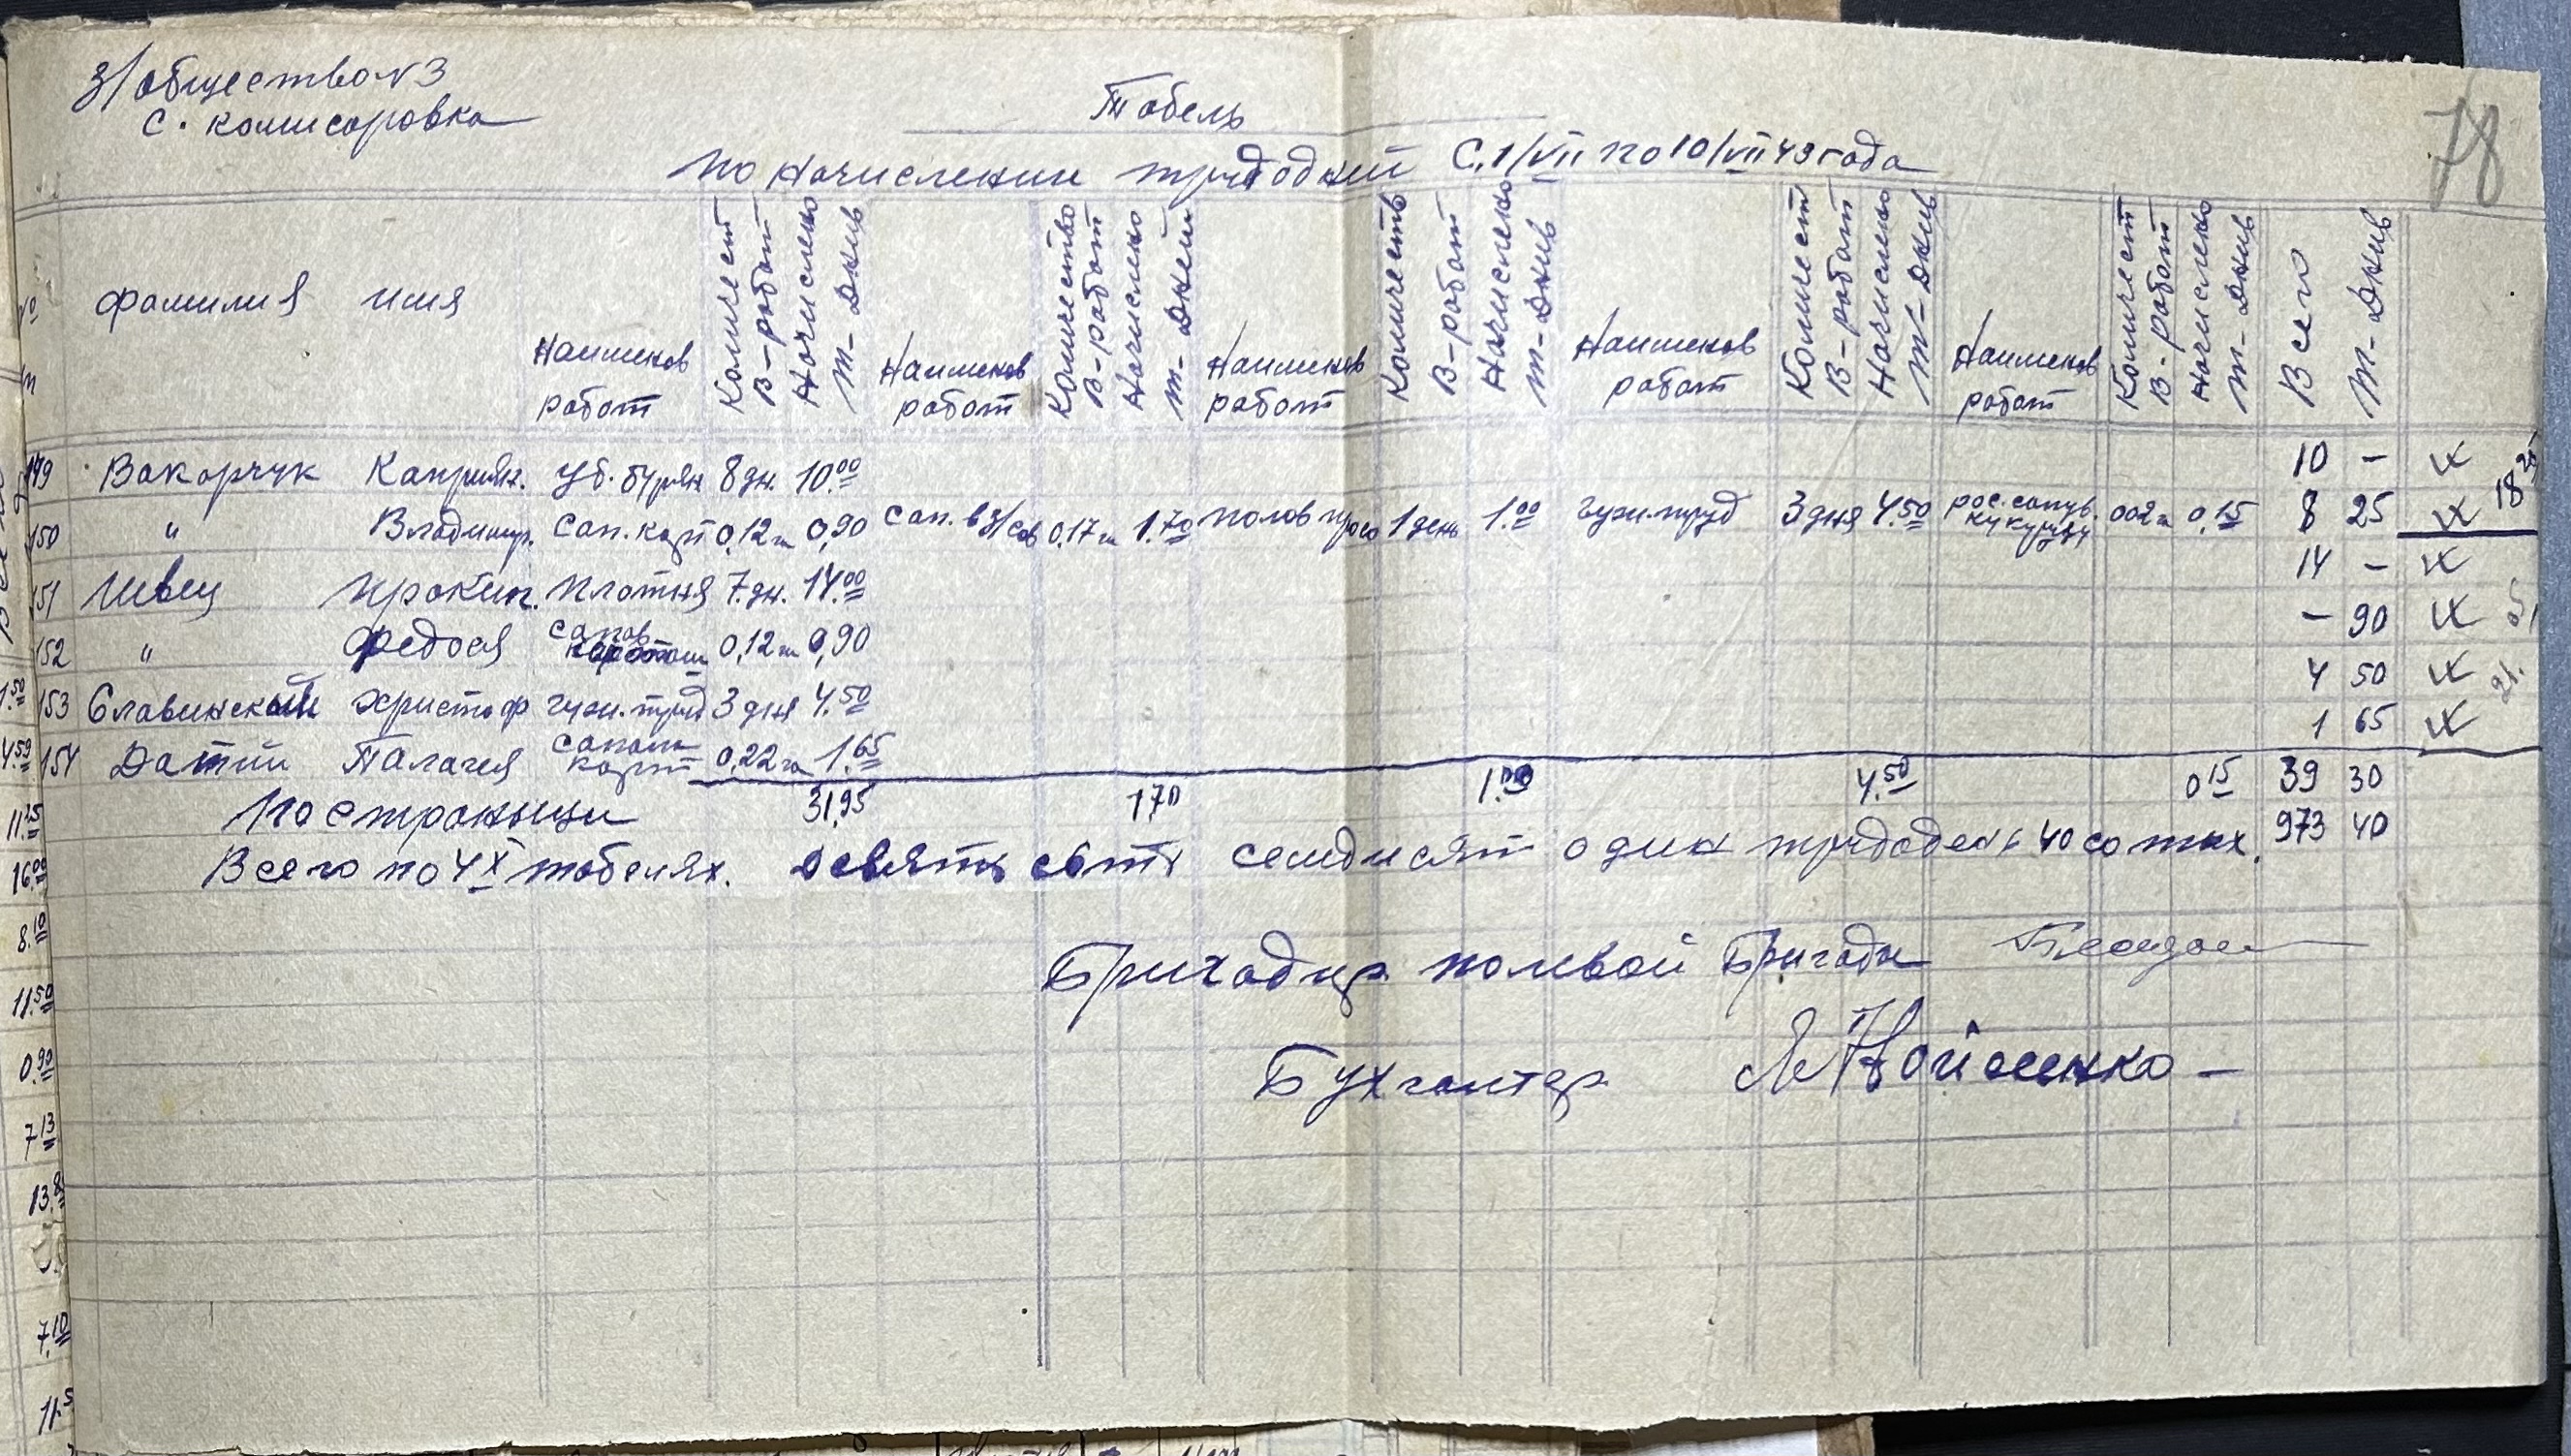 з/общество N3
с. комисаровка
78
Табель
по начислении трудодней С. 1/VII по 10/VII 43 года
фамилия имя Наименов работ Количест в-работ Начислено т-днив Наименов работ Количество в-работ Начислено т-дней Наименов работ Количеств в-работ Начислено т-днив Наименов работ Количест в-работ Начислено т-днив Наименов работ Количест в-работ Начислено т-днив Всего т-днив
149 Вакарчук Каприян. уб. бурян 8 дн. 10.00 10 -
150 " Владимир. сап. карт 0,12 га 0,90 сап. в з/сов 0,17 га 1.70 полов просо 1 день 1.00 гужтруд 3 дня 4.50 рос. сапув. кукурузу 002 га 0,15 8 25 18 25
151 Швец Прокип. плотня 7 дн. 14.00 14 -
152 " Федося сапов картош 0,12 га 0,90 - 90
153 Славинский христоф гуж. труд 3 дня 4.50 4 50
154 Датий Палагея сапат карт 0,22 га 1.65 1 65
По страницы 31,95 1,70 1.00 4.50 0 15 39 30
Всего по 4х табелях. девять сот семдисят один трудоден 40 сотых. 973 40
Брихадир полевой Бригады
Бухгалтер
1.50
4.50
11.25
16.00
8.10
11.50
0.90
7 13
7.10